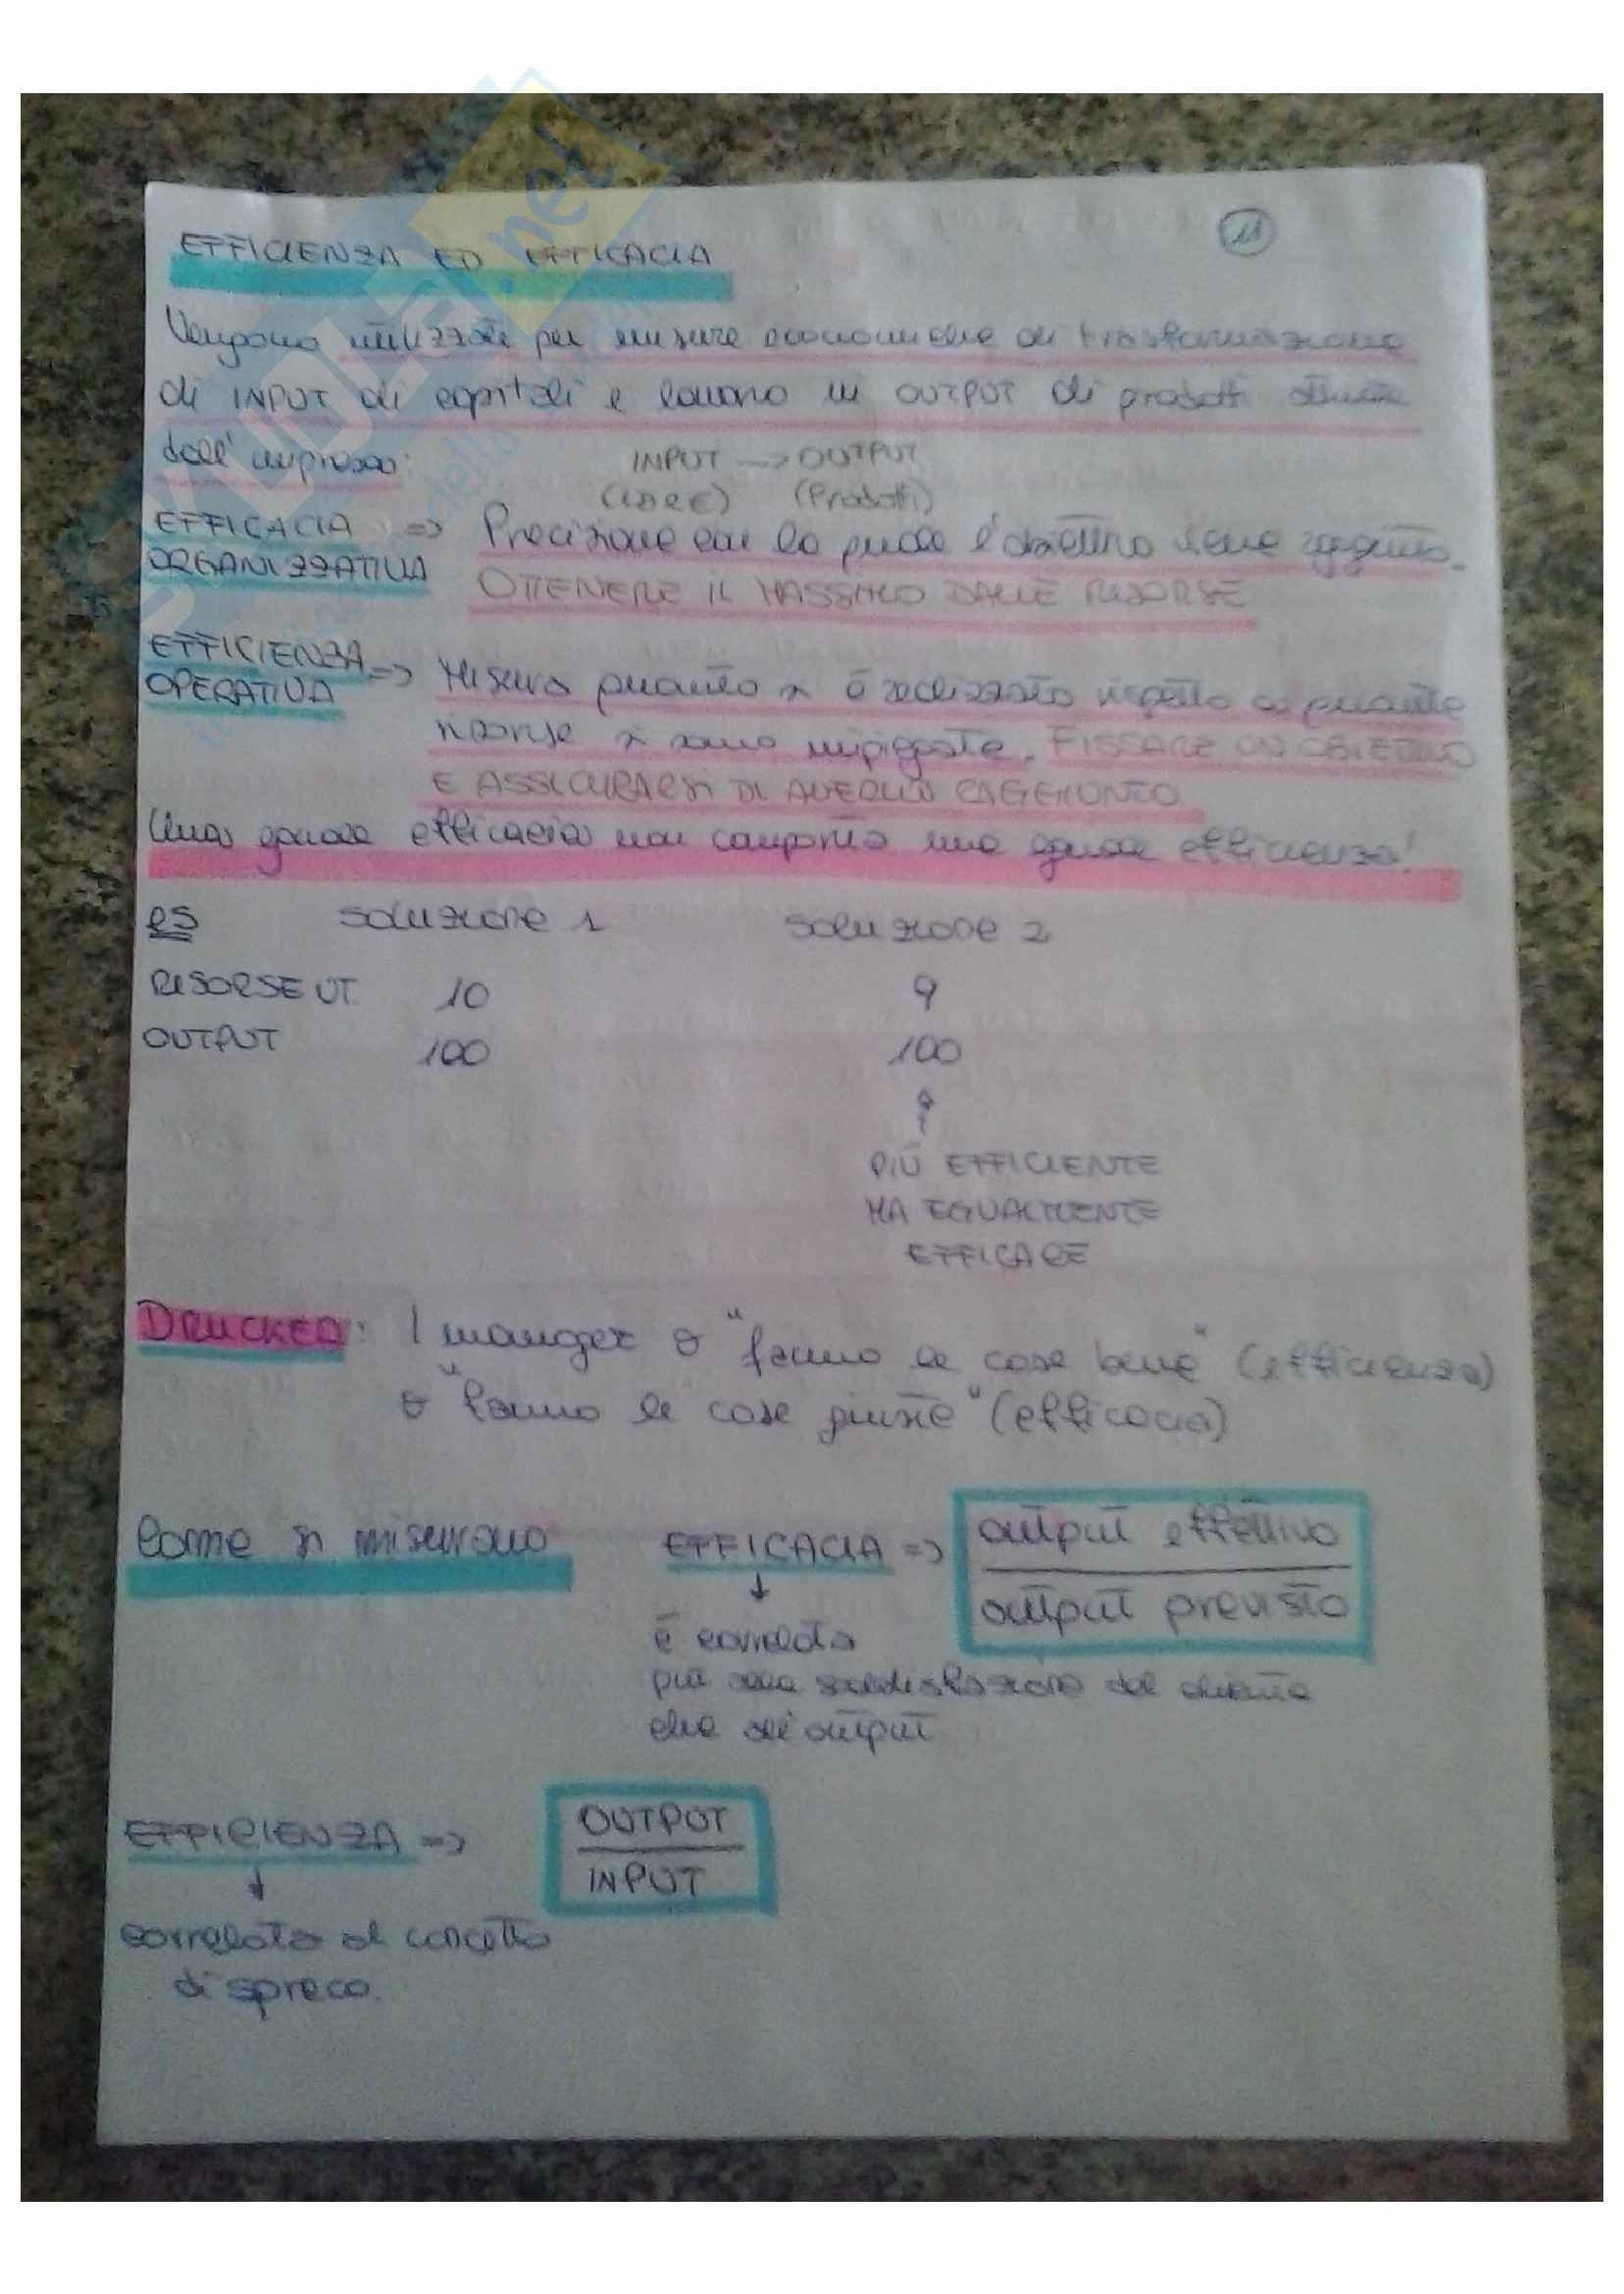 11
EFFICIENZA ED EFFICACIA
Vengono utilizzate per misure economiche di trasformazione
di INPUT di capitali e lavoro in OUTPUT di prodotti
dall'impresa:
INPUT -> OUTPUT
(IDEE) (Prodotti)
EFFICACIA
ORGANIZZATIVA
=> Precisione con la quale l'obiettivo viene raggiunto.
OTTENERE IL MASSIMO DALLE RISORSE
EFFICIENZA
OPERATIVA
=> Misura quanto si è realizzato rispetto a quante
risorse si sono impiegate. FISSARE UN OBIETTIVO
E ASSICURARSI DI AVERLO RAGGIUNTO
Una grande efficacia non comporta una grande efficienza!
es SOLUZIONE 1 SOLUZIONE 2
RISORSE UT. 10 9
OUTPUT 100 100
PIÙ EFFICIENTE
MA EGUALMENTE
EFFICACE
DRUCKER: I manager o "fanno le cose bene" (efficienza)
o "fanno le cose giuste" (efficacia)
Come si misurano
EFFICACIA => output effettivo
output previsto
è correlata
più alla soddisfazione del cliente
che all'output
EFFICIENZA => OUTPUT
INPUT
correlata al concetto
di spreco.